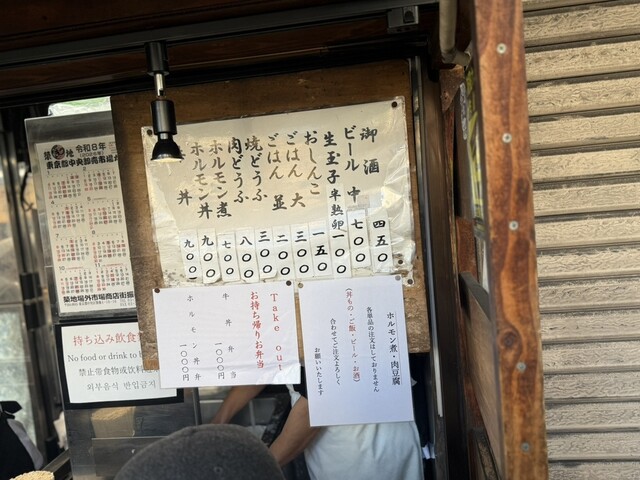 御酒 四五〇
ビール 中 七〇〇
生玉子 半熟卵 一〇〇
おしんこ 一五〇
ごはん 大 三〇〇
ごはん 並 二〇〇
焼どうふ 三〇〇
肉どうふ 八〇〇
ホルモン煮 七〇〇
ホルモン丼 九〇〇
丼 九〇〇
ホルモン煮・肉豆腐
各単品の注文はしておりません
(丼もの・ご飯・ビール・お酒)
合わせてご注文よろしく
お願いいたします
Take out
お持ち帰りお弁当
牛丼弁当 一〇〇〇円
ホルモン丼弁当 一〇〇〇円
令和8年
東京都中央卸売市場
築地場外市場商店街振
持ち込み飲食
No food or drink to
禁止带食物或饮料
외부음식 반입금지